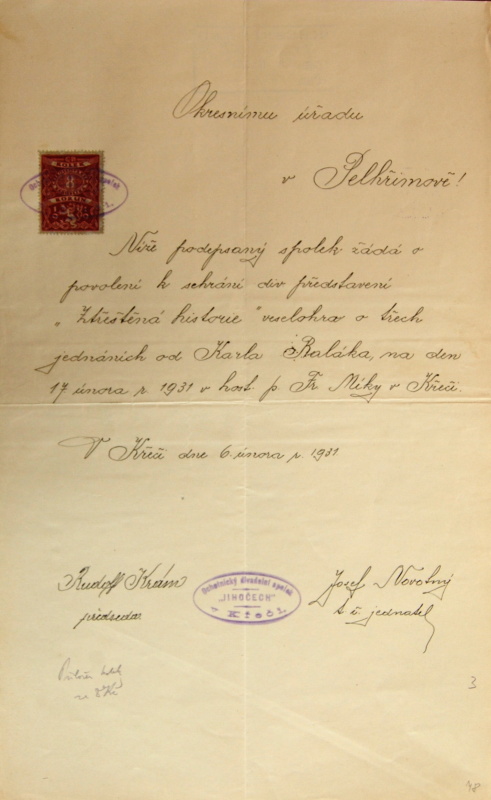 Okresnímu úřadu
v Pelhřimově!
KOLEK
8
KORUN
Níže podepsaný spolek žádá o
povolení k sehrání div představení
„Ztřeštěná historie" veselohra o třech
jednáních od Karla Baláka, na den
17 února r. 1931 v host. p. Fr Míky v Křeči.
V Křeči dne 6. února r. 1931
Rudolf Krám
předseda
Ochotnický divadelní spolek
„JIHOČECH"
v Křeči.
Josef Novotný
t. č. jednatel
3
48